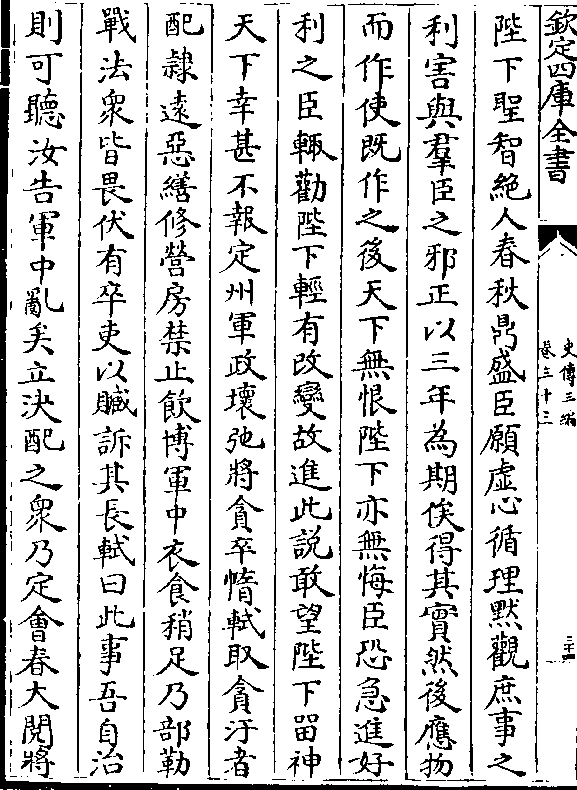 欽定四庫全書
史傳三編
卷三十三
陛下聖智絶人春秋鼎盛臣願虚心循理黙觀庶事之
利害與羣臣之邪正以三年為期俟得其實然後應物
而作使既作之後天下無恨陛下亦無悔臣恐急進好
利之臣輙勸陛下輕有改變故進此説敢望陛下留神
天下幸甚不報定州軍政壞弛將貪卒惰軾取貪汙者
配隷逺惡繕修營房禁止飲博軍中衣食稍足乃部勒
戰法衆皆畏伏有卒吏以贓訴其長軾曰此事吾自治
則可聽汝告軍中亂矣立決配之衆乃定會春大閲將